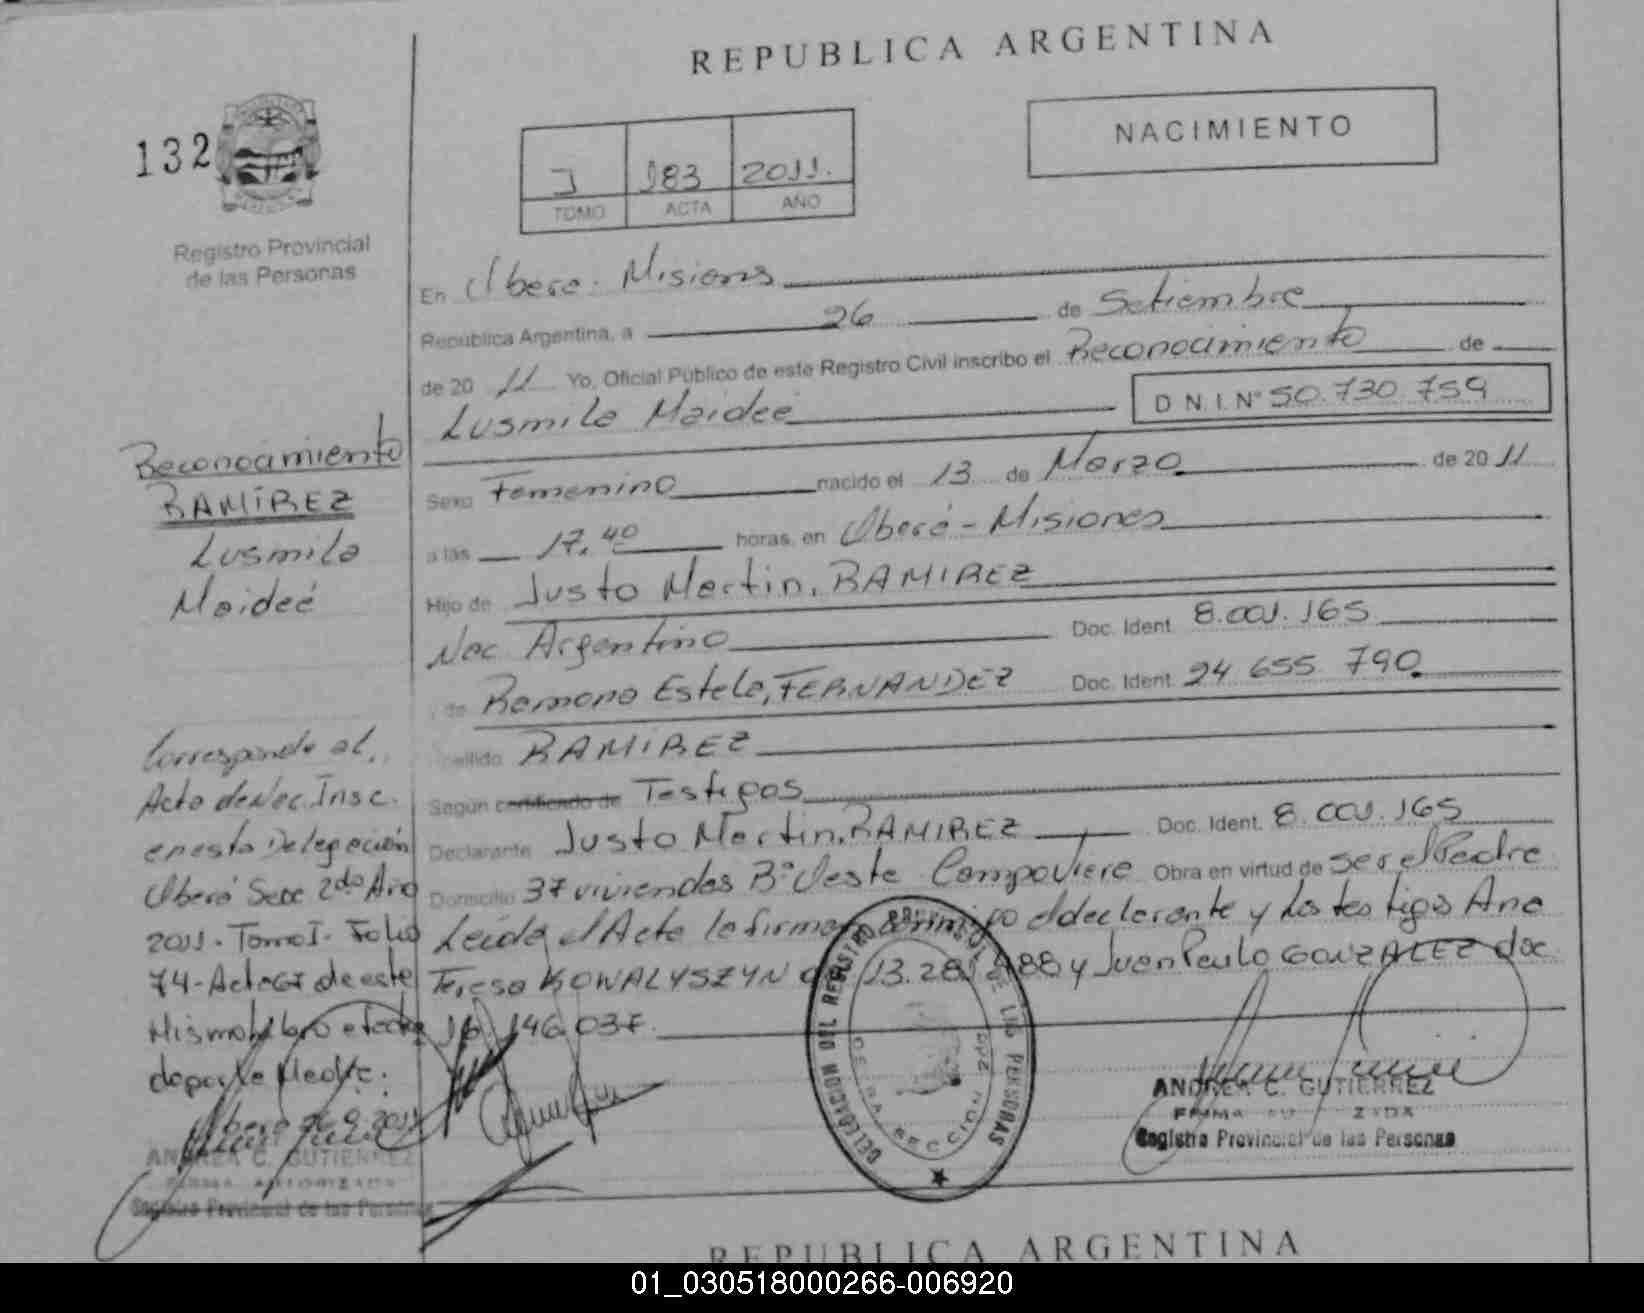 REPUBLICA ARGENTINA
132
NACIMIENTO
I 183 2011.
TOMO ACTA AÑO
Registro Provincial
de las Personas
En Oberá - Misiones
República Argentina, a 26 de Setiembre
de 20 11 Yo, Oficial Público de este Registro Civil inscribo el Reconocimiento de
Lusmila Maideé D N I. N° 50.730.759
Reconocimiento
RAMÍREZ
Lusmila
Maideé
Sexo Femenino nacido el 13 de Marzo de 20 11
a las 17.40 horas, en Oberá - Misiones
Hijo de Justo Martin, RAMIREZ
Nac Argentino Doc. Ident. 8.001.165
y de Ramona Estela, FERNANDEZ Doc. Ident. 24 655 790
RAMIREZ
Según certificado de Testigos
Declarante Justo Martin, RAMIREZ Doc. Ident. 8.001.165
Domicilio 37 viviendas B° Oeste Campo Viera Obra en virtud de ser el Padre
Leida el Acta la firman conmigo el declarante y los testigos Ana
Teresa KOWALYSZYN 13.281.488 y Juan Paulo GONZALEZ doc
16 146 037.
Corresponde al
Acta de Nac. Insc.
en esta Delegación
Oberá Secc 2da Año
2011. Tomo I. Folio
74 - Acta de este
Mismo Libro efectua
da por la Madre.
Oberá 26.9.2011
ANDREA C. GUTIERREZ
FIRMA AUTORIZADA
Registro Provincial de las Personas
DELEGACION DEL REGISTRO PROVINCIAL DE LAS PERSONAS
OBERA SECCION 2DA
ANDREA C. GUTIERREZ
FIRMA AUTORIZADA
Registro Provincial de las Personas
REPUBLICA ARGENTINA
01_030518000266-006920